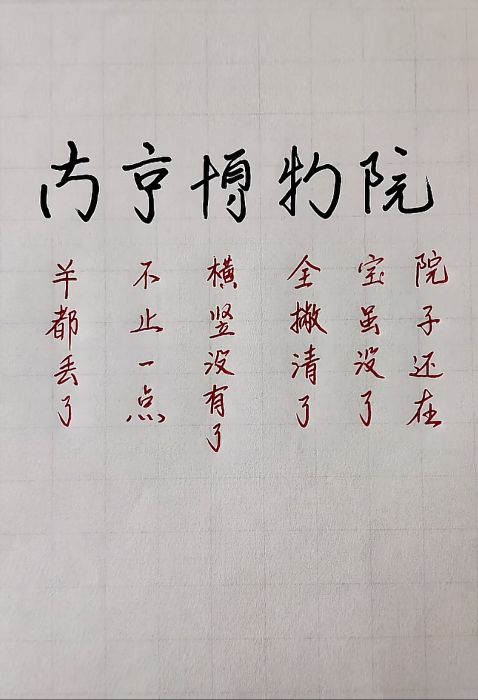 内亨博物院
羊都丢了
不止一点
横竖没有了
全撇清了
宝虽没了
院子还在